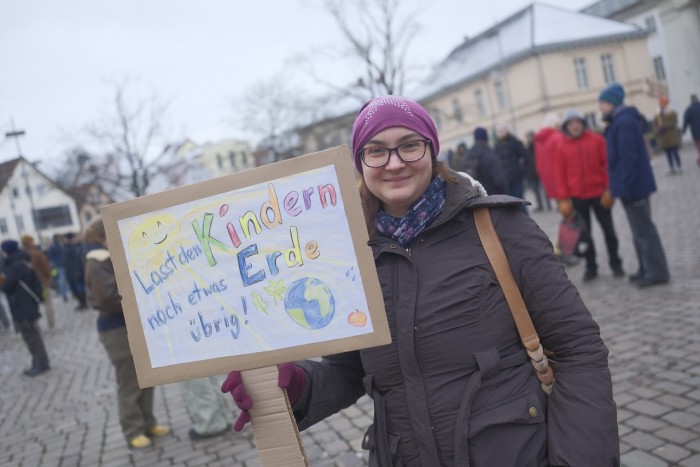 Lasst den Kindern
noch etwas Erde
übrig!